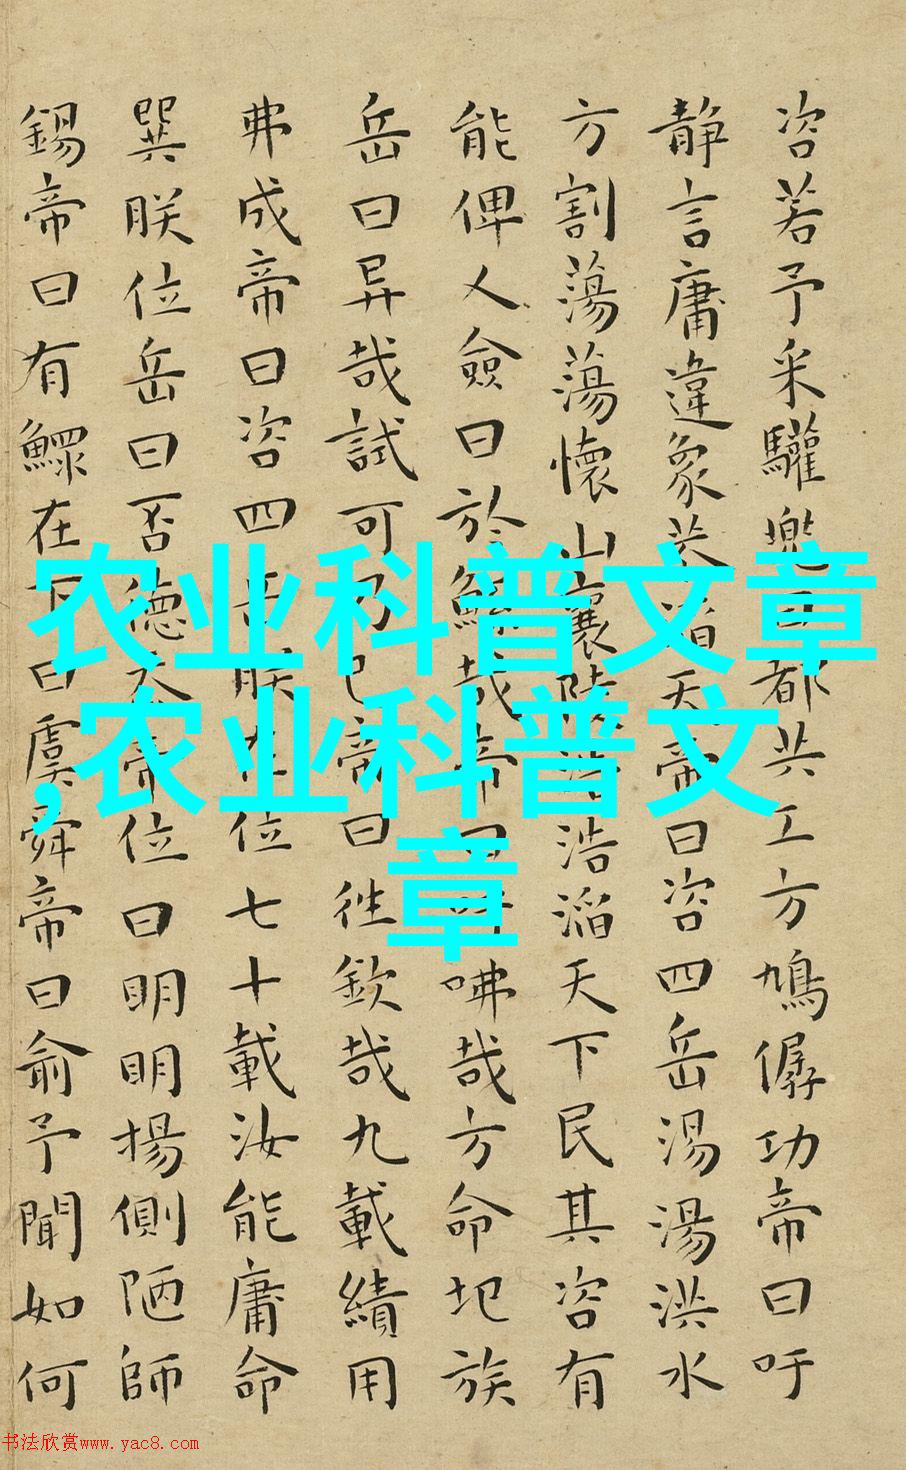 咨若予采驩兜曰都共工方鳩僝功帝曰吁
静言庸違象恭滔天帝曰咨四岳湯湯洪水
方割蕩蕩懷山襄陵浩浩滔天下民其咨有
能俾乂僉曰於鯀哉帝曰吁咈哉方命圯族
岳曰异哉試可乃已帝曰往欽哉九載績用
弗成帝曰咨四岳朕在位七十載汝能庸命
巽朕位岳曰否德忝帝位曰明明揚側陋師
錫帝曰有鰥在下曰虞舜帝曰俞予聞如何
农业科普文章
,农业科普文
章
书法欣赏www.yac8.com